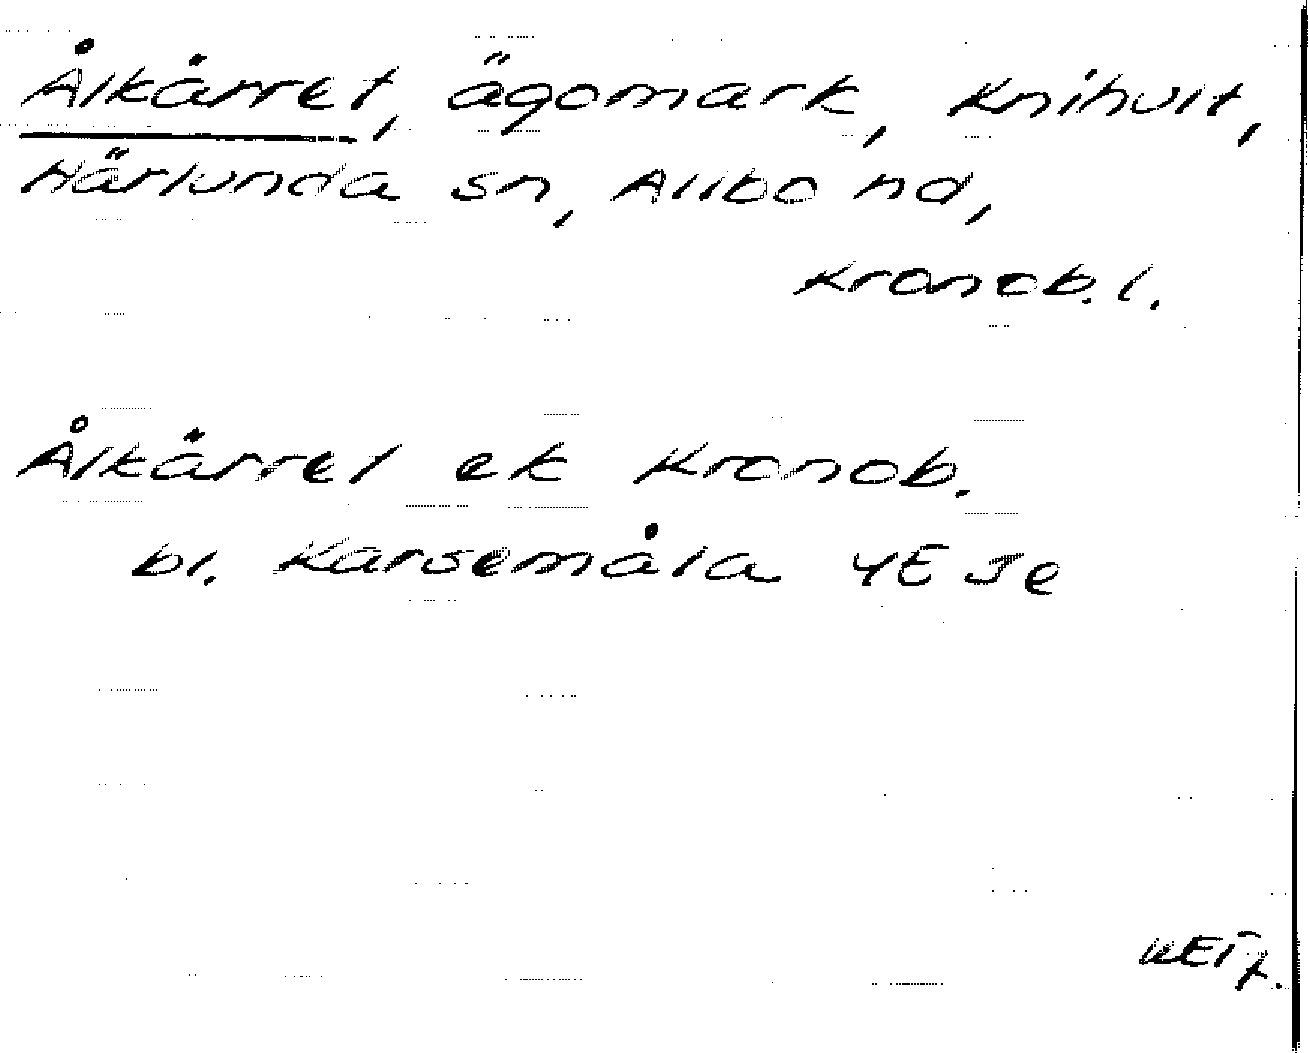 Älkärret, ägomark, Knihult,
Härlunda sn, Allbo hd,
Kronob. l.
Älkärret ek Kronob.
bl. Karsemåla 4E Je